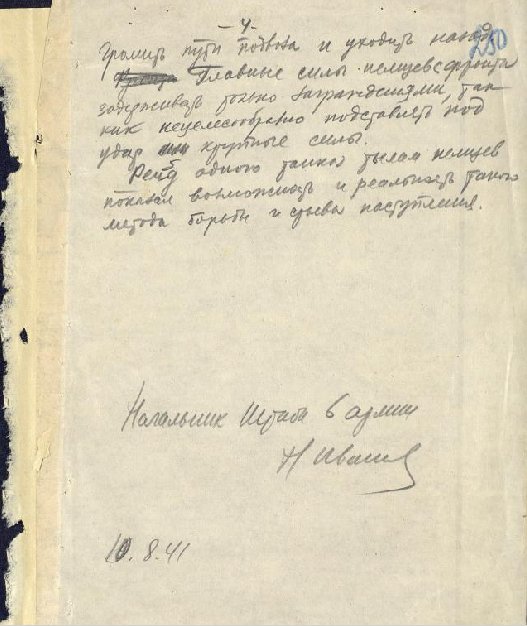 - 4 -
280
громить пути подвоза и уходить назад.
Главные силы немцев с фронта
задерживать только заграждениями, так
как нецелесообразно подставлять под
удар крупные силы.
Рейд одного танка тылам немцев
показал возможность и реальность такого
метода борьбы и срыва наступления.
Начальник Штаба 6 армии
Н Иванов
10.8.41